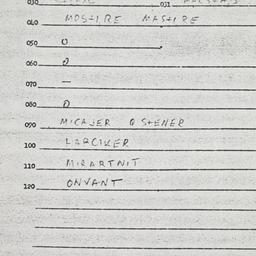 030 031
040 MOSTIRE MASTIRE
050 0
060
070 —
080 0
090 MICAJER O STENER
100 LARCIKER
110 MIRARTNIT
120 ONVANT